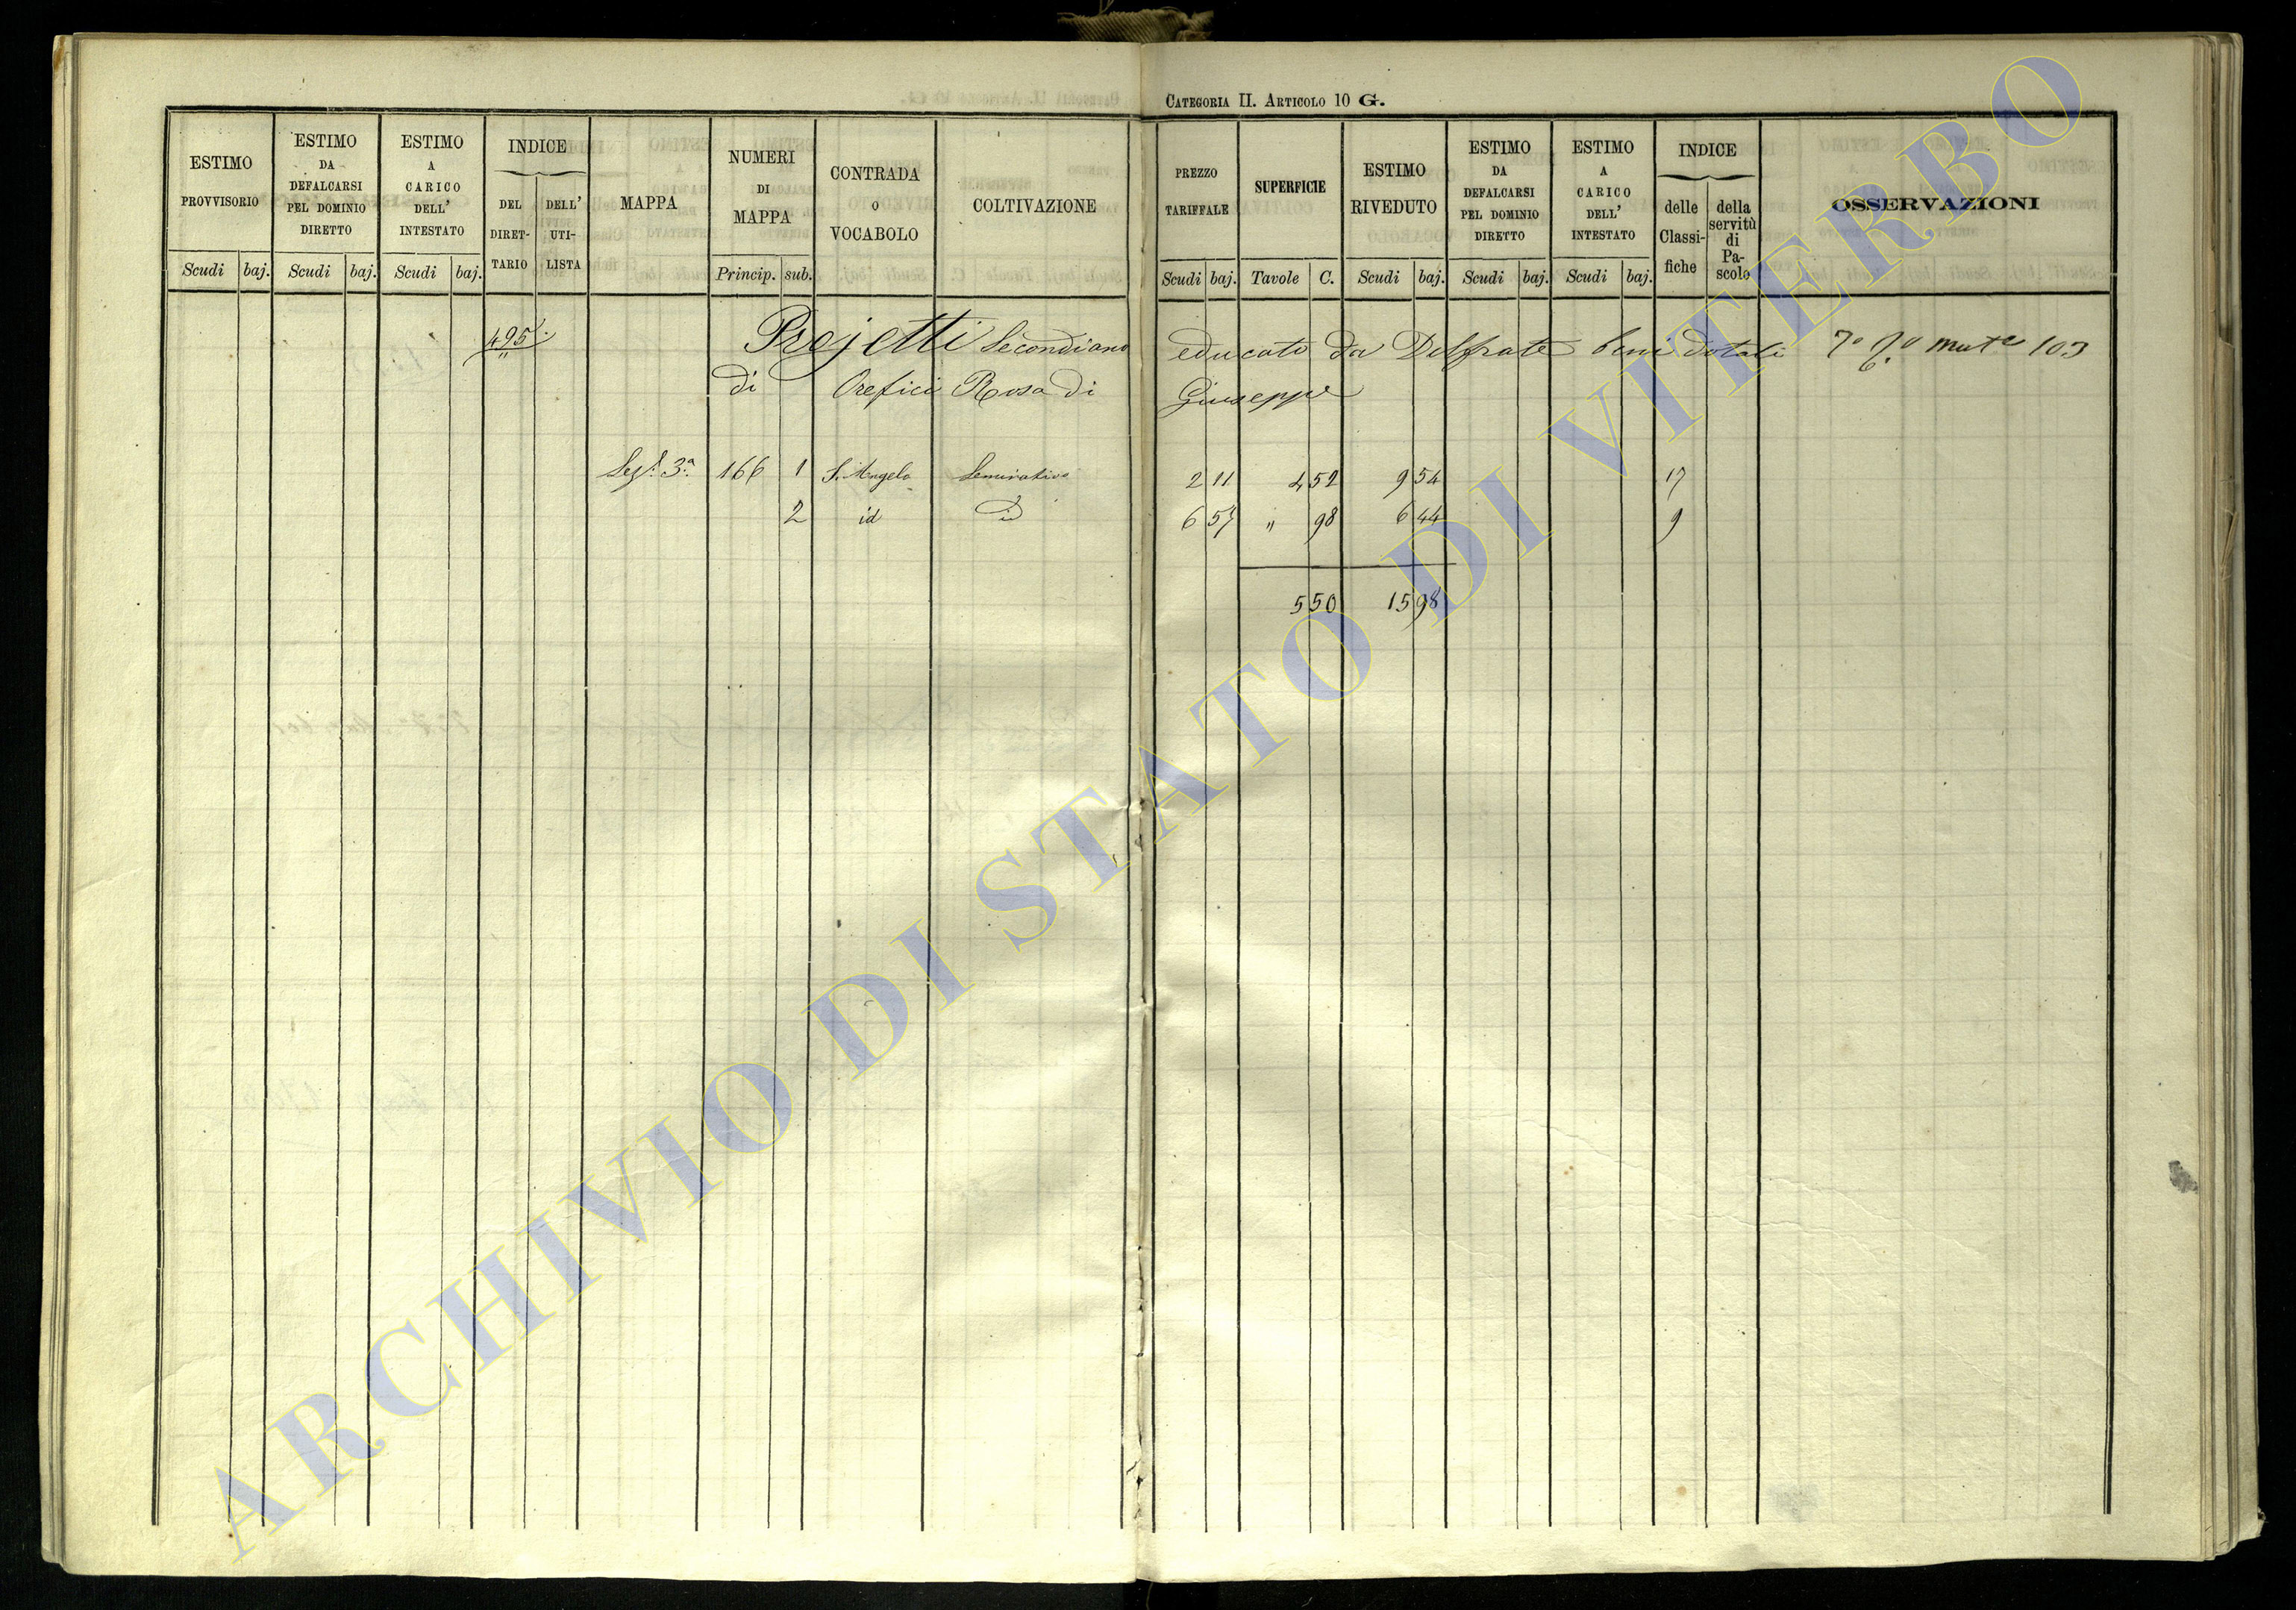 CATEGORIA II. ARTICOLO 10 G.
ESTIMO PROVVISORIO Scudi baj.
ESTIMO DA DEFALCARSI PEL DOMINIO DIRETTO Scudi baj.
ESTIMO A CARICO DELL' INTESTATO Scudi baj.
INDICE DEL DIRET-TARIO DELL' UTI-LISTA
MAPPA
NUMERI DI MAPPA Princip. sub.
CONTRADA O VOCABOLO
COLTIVAZIONE
PREZZO TARIFFALE Scudi baj.
SUPERFICIE Tavole C.
ESTIMO RIVEDUTO Scudi baj.
ESTIMO DA DEFALCARSI PEL DOMINIO DIRETTO Scudi baj.
ESTIMO A CARICO DELL' INTESTATO Scudi baj.
INDICE delle Classi-fiche della servitù di Pa-scolo
OSSERVAZIONI
495 Projetti Secondiano educato da Delfrate beni dotali 103
di Orefici Rosa di Giuseppe
Sez. 3ª 166 1 S. Angelo Seminativo 2 11 4 52 9 54 17
2 id id 6 57 " 98 6 44 9
5 50 15 98
ARCHIVIO DI STATO DI VITERBO